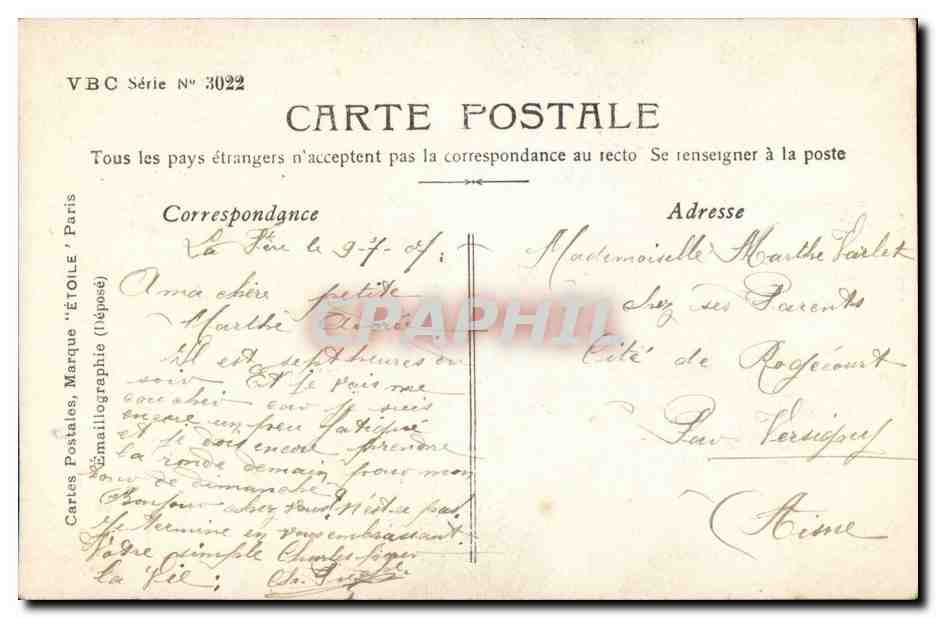 VBC Série No 3022
CARTE POSTALE
Tous les pays étrangers n'acceptent pas la correspondance au recto Se renseigner à la poste
Cartes Postales, Marque "ÉTOILE" Paris
Émaillographie (Déposé)
Correspondance
La Fère le 9-7-
A ma chère petite
Marthe
Il est sept heures du
soir Et je vais me
coucher car je suis
encore un peu fatigué
et je dois encore prendre
la ronde demain pour mon
jour de dimanche
Bonjour chez vous n'est-ce pas
Je termine en vous embrassant
Votre simple Charles pour
la vie :
CPAPHIL
Adresse
Mademoiselle Marthe Varlet
chez ses Parents
Cité de Rogécourt
Par Versigny
(Aisne